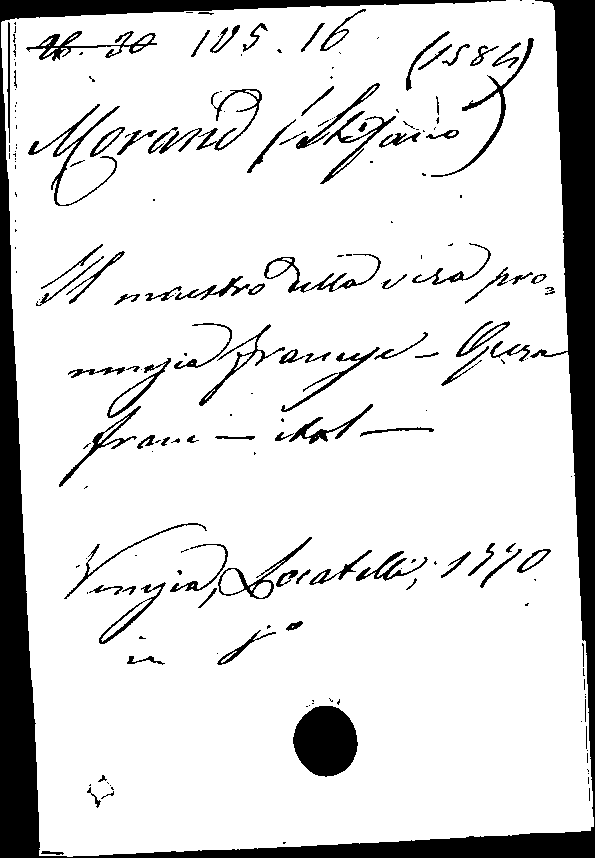 26. 30 105.16
(1584)
Morand (Stefano)
Il maestro della vera pro=
nunzia francese - Opera
franc - ital -
Venezia, Locatelli, 1770
in 8°